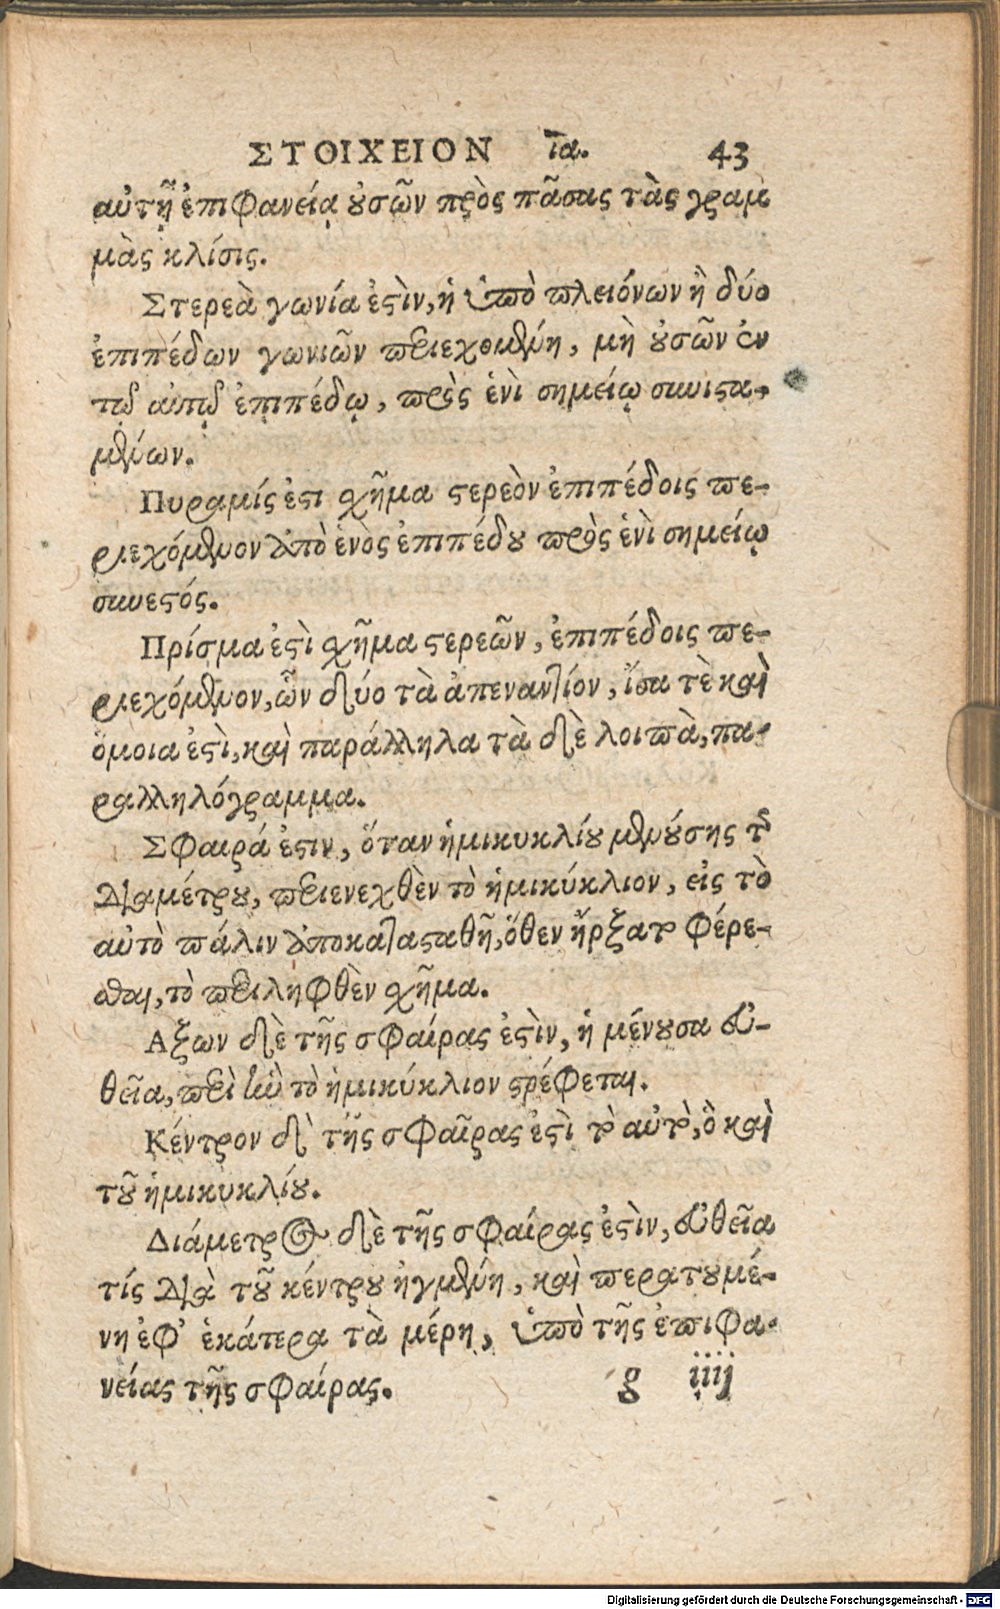 ΣΤΟΙΧΕΙΟΝ ια. 43
αὐτῇ ἐπιφανείᾳ οὐσῶν πρὸς πᾶσας τὰς γραμ
μὰς κλίσις.
Στερεὰ γωνία ἐστὶν, ἡ ὑπὸ πλειόνων ἢ δύο
ἐπιπέδων γωνιῶν περιεχομένη, μὴ οὐσῶν ἐν
τῷ αὐτῷ ἐπιπέδῳ, πρὸς ἑνὶ σημείῳ συνιστα-
μένων.
Πυραμίς ἐστι σχῆμα στερεὸν ἐπιπέδοις πε-
ριεχόμενον ἀπὸ ἑνὸς ἐπιπέδου πρὸς ἑνὶ σημείῳ
συνεστός.
Πρίσμα ἐστὶ σχῆμα στερεῶν, ἐπιπέδοις πε-
ριεχόμενον, ὧν δύο τὰ ἀπεναντίον, ἴσα τὲ καὶ
ὅμοια ἐστὶ, καὶ παράλληλα τὰ δὲ λοιπὰ, πα-
ραλληλόγραμμα.
Σφαιρά ἐστιν, ὅταν ἡμικυκλίου μενούσης τῆς
διαμέτρου, περιενεχθὲν τὸ ἡμικύκλιον, εἰς τὸ
αὐτὸ πάλιν ἀποκατασταθῇ, ὅθεν ἤρξατο φέρε-
σθαι, τὸ περιληφθὲν σχῆμα.
Αξων δὲ τῆς σφαίρας ἐστὶν, ἡ μένουσα εὐ-
θεῖα, περὶ ἣν τὸ ἡμικύκλιον στρέφεται.
Κέντρον δὲ τῆς σφαῖρας ἐστὶ τὸ αὐτὸ, ὃ καὶ
τοῦ ἡμικυκλίου.
Διάμετρος δὲ τῆς σφαίρας ἐστὶν, εὐθεῖα
τίς διὰ τοῦ κέντρου ἠγμένη, καὶ περατουμέ-
νη ἐφ’ ἑκάτερα τὰ μέρη, ὑπὸ τῆς ἐπιφα-
νείας τῆς σφαίρας.
g iiij
Digitalisierung gefördert durch die Deutsche Forschungsgemeinschaft - DFG